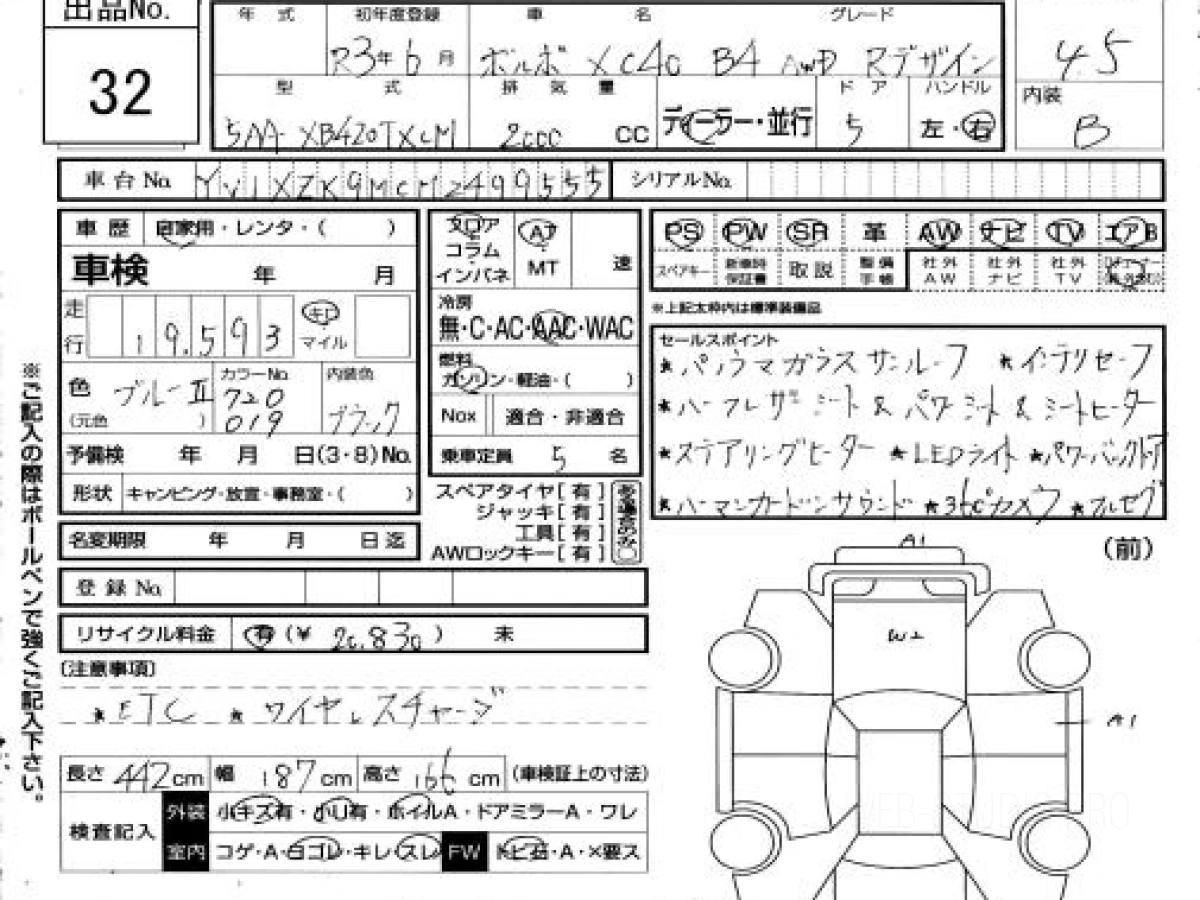 出品No.
32
年式 初年度登録 車名 グレード
R3年6月 ボルボ XC40 B4 AWD Rデザイン
4.5
型式 排気量 ドア ハンドル
5AA-XB420TXCM 2000 CC ディーラー・並行 5 左・右
内装
B
車台No. YV1XZK9MCM2499555 シリアルNo.
車歴 自家用・レンタ・( )
車検 年 月
走行 19.593 キロ マイル
色 ブルーII (元色 ) カラーNo. 720 019 内装色 ブラック
予備検 年 月 日(3・8)No.
形状 キャンピング・放宣・事務室・( )
名変期限 年 月 日迄
フロア コラム インパネ AT MT 速
冷房
無・C・AC・AAC・WAC
燃料
ガソリン・軽油・( )
Nox 適合・非適合
乗車定員 5 名
スペアタイヤ[有]
ジャッキ[有]
工具[有]
AWロックキー[有]
ある場合のみ○
PS PW SR 革 AW ナビ TV エアB
スペアキー 新車時保証書 取説 整備手帳 社外AW 社外ナビ 社外TV
※上記太枠内は標準装備品
セールスポイント
★パノラマガラスサンルーフ ★インテリセーフ
★ハーフレザーシート & パワーシート & シートヒーター
★ステアリングヒーター ★LEDライト ★パワーバックドア
★ハーマンカードンサウンド ★360°カメラ ★フルセグ
登録No.
リサイクル料金 有(¥ 20.830) 未
(注意事項)
★ETC ★ワイヤレスチャージ
長さ 442cm 幅 187cm 高さ 166cm (車検証上の寸法)
検査記入
外装 小キズ有・小U有・ホイルA・ドアミラーA・ワレ
室内 コゲ・A・白ゴレ・キレ・スレ FW トビ石・A・×要ス
(前)
A1
W2
A1
※ご記入の際はボールペンで強くご記入下さい。